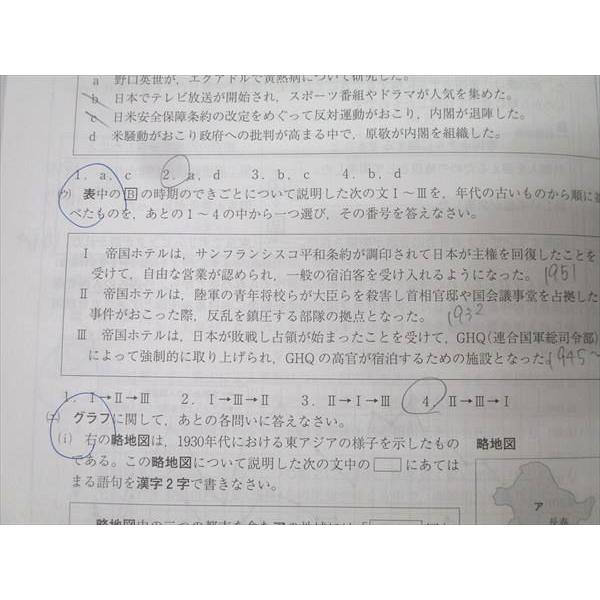 a 野口英世が，エクアドルで黄熱病について研究した。
b 日本でテレビ放送が開始され，スポーツ番組やドラマが人気を集めた。
c 日米安全保障条約の改定をめぐって反対運動がおこり，内閣が退陣した。
d 米騒動がおこり政府への批判が高まる中で，原敬が内閣を組織した。
1．a，c 2．a，d 3．b，c 4．b，d
(ウ) 表中の B の時期のできごとについて説明した次の文Ⅰ～Ⅲを，年代の古いものから順に並
べたものを，あとの1～4の中から一つ選び，その番号を答えなさい。
Ⅰ 帝国ホテルは，サンフランシスコ平和条約が調印されて日本が主権を回復したことを
受けて，自由な営業が認められ，一般の宿泊客を受け入れるようになった。 1951
Ⅱ 帝国ホテルは，陸軍の青年将校らが大臣らを殺害し首相官邸や国会議事堂を占拠した
事件がおこった際，反乱を鎮圧する部隊の拠点となった。 1932
Ⅲ 帝国ホテルは，日本が敗戦し占領が始まったことを受けて，GHQ(連合国軍総司令部)
によって強制的に取り上げられ，GHQの高官が宿泊するための施設となった。 1945～
1．Ⅰ→Ⅱ→Ⅲ 2．Ⅰ→Ⅲ→Ⅱ 3．Ⅱ→Ⅰ→Ⅲ 4．Ⅱ→Ⅲ→Ⅰ
(エ) グラフに関して，あとの各問いに答えなさい。
(i) 右の略地図は，1930年代における東アジアの様子を示したもの
である。この略地図について説明した次の文中の□にあては
まる語句を漢字2字で書きなさい。
略地図
ア
長春